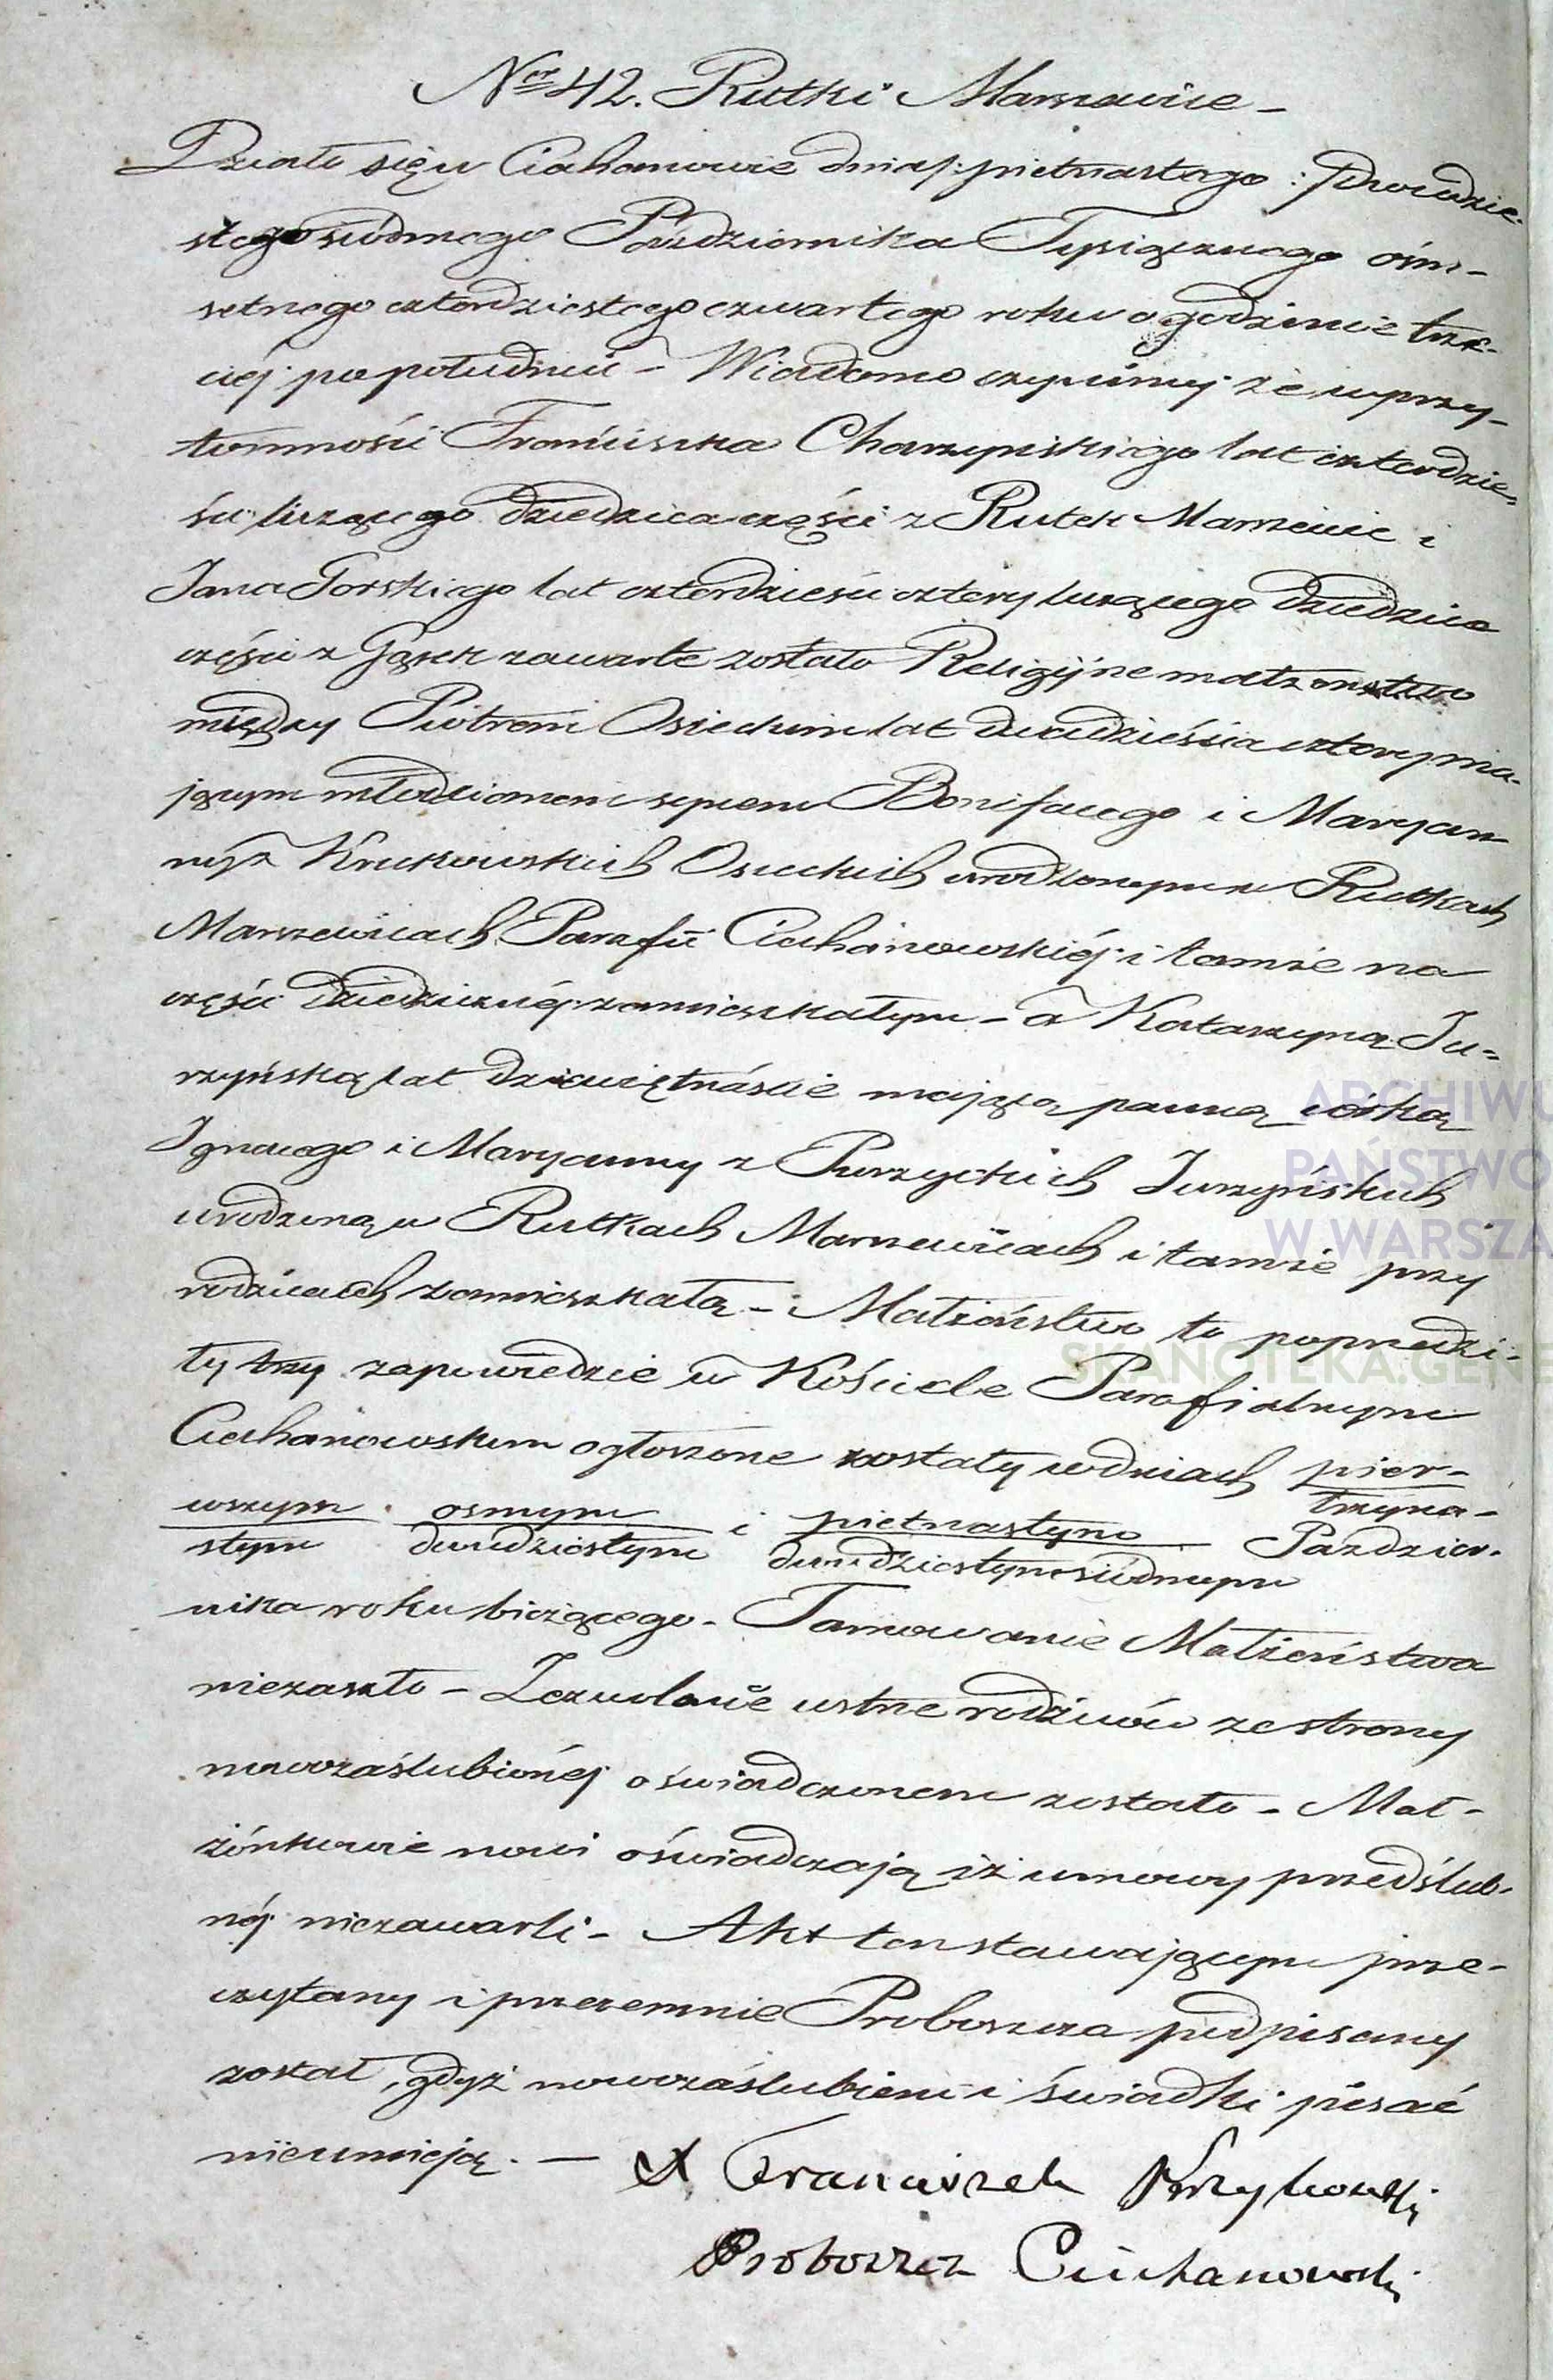 Nro 42. Rutki Marszewice –
Działo się w Ciechanowie dnia /: pietnastego :/ dwudzie-
stego siódmego Października Tysiącznego ośm-
setnego czterdziestego czwartego roku o godzinie trze-
ciéj po południu – Wiadomo czyniemy że w przy-
tomności Franciszka Charzyńskiego lat czterdzie-
ści liczącego dziedzica części z Rutek Marszewic i
Jana Gorskiego lat czterdzieści cztery liczącego dziedzica
części z Gąsek zawarte zostało Religijne małżeństwo
między Piotrem Osieckim lat dwadzieścia cztery ma-
jącym młodzianem synem Bonifacego i Maryan-
ny z Krukowskich Osieckich urodzonym w Rutkach
Marszewicach Parafii Ciechanowskiéj i tamże na
części dziedzicznéj zamieszkałym – a Katarzyną Ju-
rzyńską lat dziewiętnaście mającą panną córką
Ignacego i Maryanny z Purzyckich Jurzyńskich
urodzoną w Rutkach Marszewicach i tamże przy
rodzicach zamieszkałą – Małżeństwo to poprzedzi-
ły trzy zapowiedzie w Kościele Parafialnym
Ciechanowskim ogłoszone zostały w dniach pier-
wszym osmym i pietnastym trzyna-
stym dwudziestym dwudziestym siódmym Paździer-
nika roku bieżącego – Tamowanie Małżeństwa
niezaszło – Zezwolenie ustne rodziców ze strony
nowozaślubionéj oświadczonem zostało – Mał-
żonkowie nowi oświadczają iż umowy przedślub-
néj niezawarli – Akt ten stawającym prze-
czytany i przezemnie Proboszcza podpisany
został, gdyż nowozaślubieni i świadki pisać
nieumieją. –
X Franciszek
Proboszcz Ciechanowski
ARCHIWU
PAŃSTWO
W WARSZA
SKANOTEKA.GENE